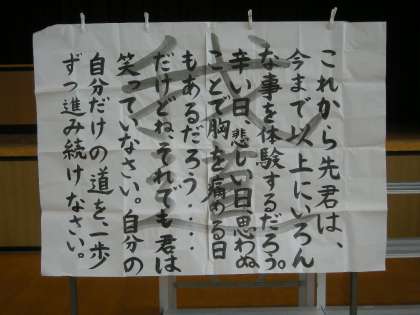 これから先君は、
今まで以上にいろん
な事を体験するだろう。
辛い日、悲しい日思わぬ
ことで胸を痛める日
もあるだろう・・・・
だけどね、それでも君は
笑っていなさい。自分の
自分だけの道を、一歩
ずつ進み続けなさい。